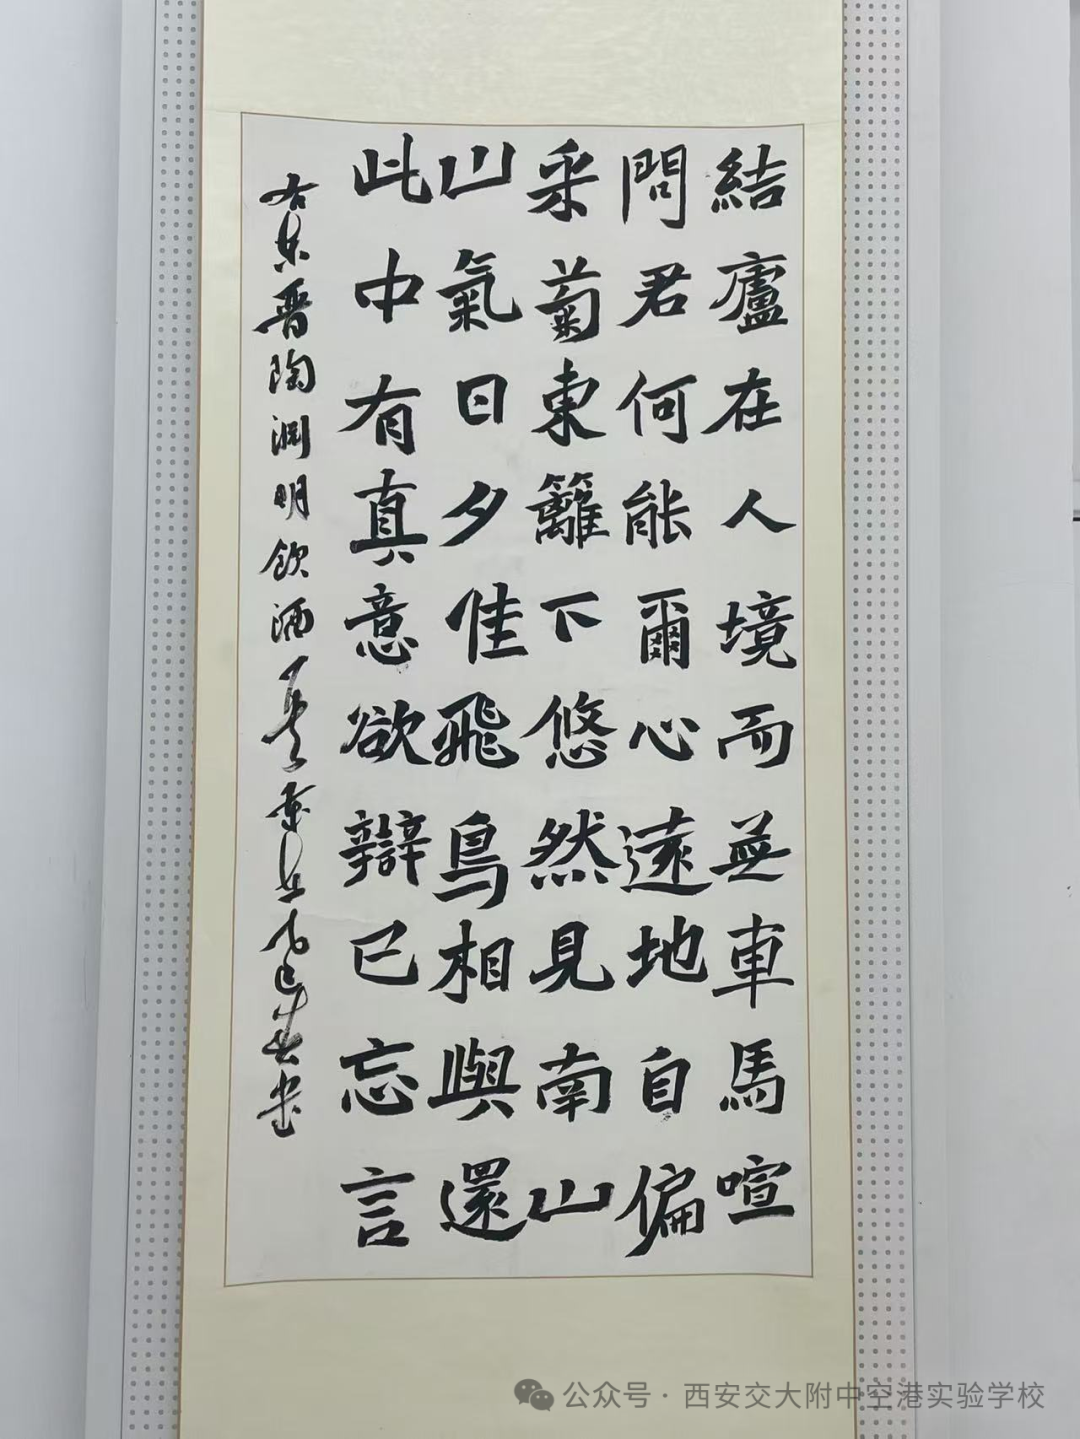 結廬在人境而無車馬喧
問君何能爾心遠地自偏
采菊東籬下悠然見南山
山氣日夕佳飛鳥相與還
此中有真意欲辯已忘言
右东晋陶渊明飲酒 乙巳春书
公众号·西安交大附中空港实验学校